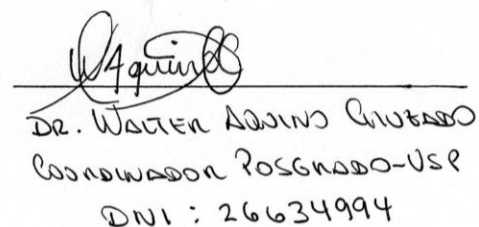 WAquino
DR. WALTER AQUINO CRUZADO
COORDINADOR POSGRADO-USP
DNI: 26634994